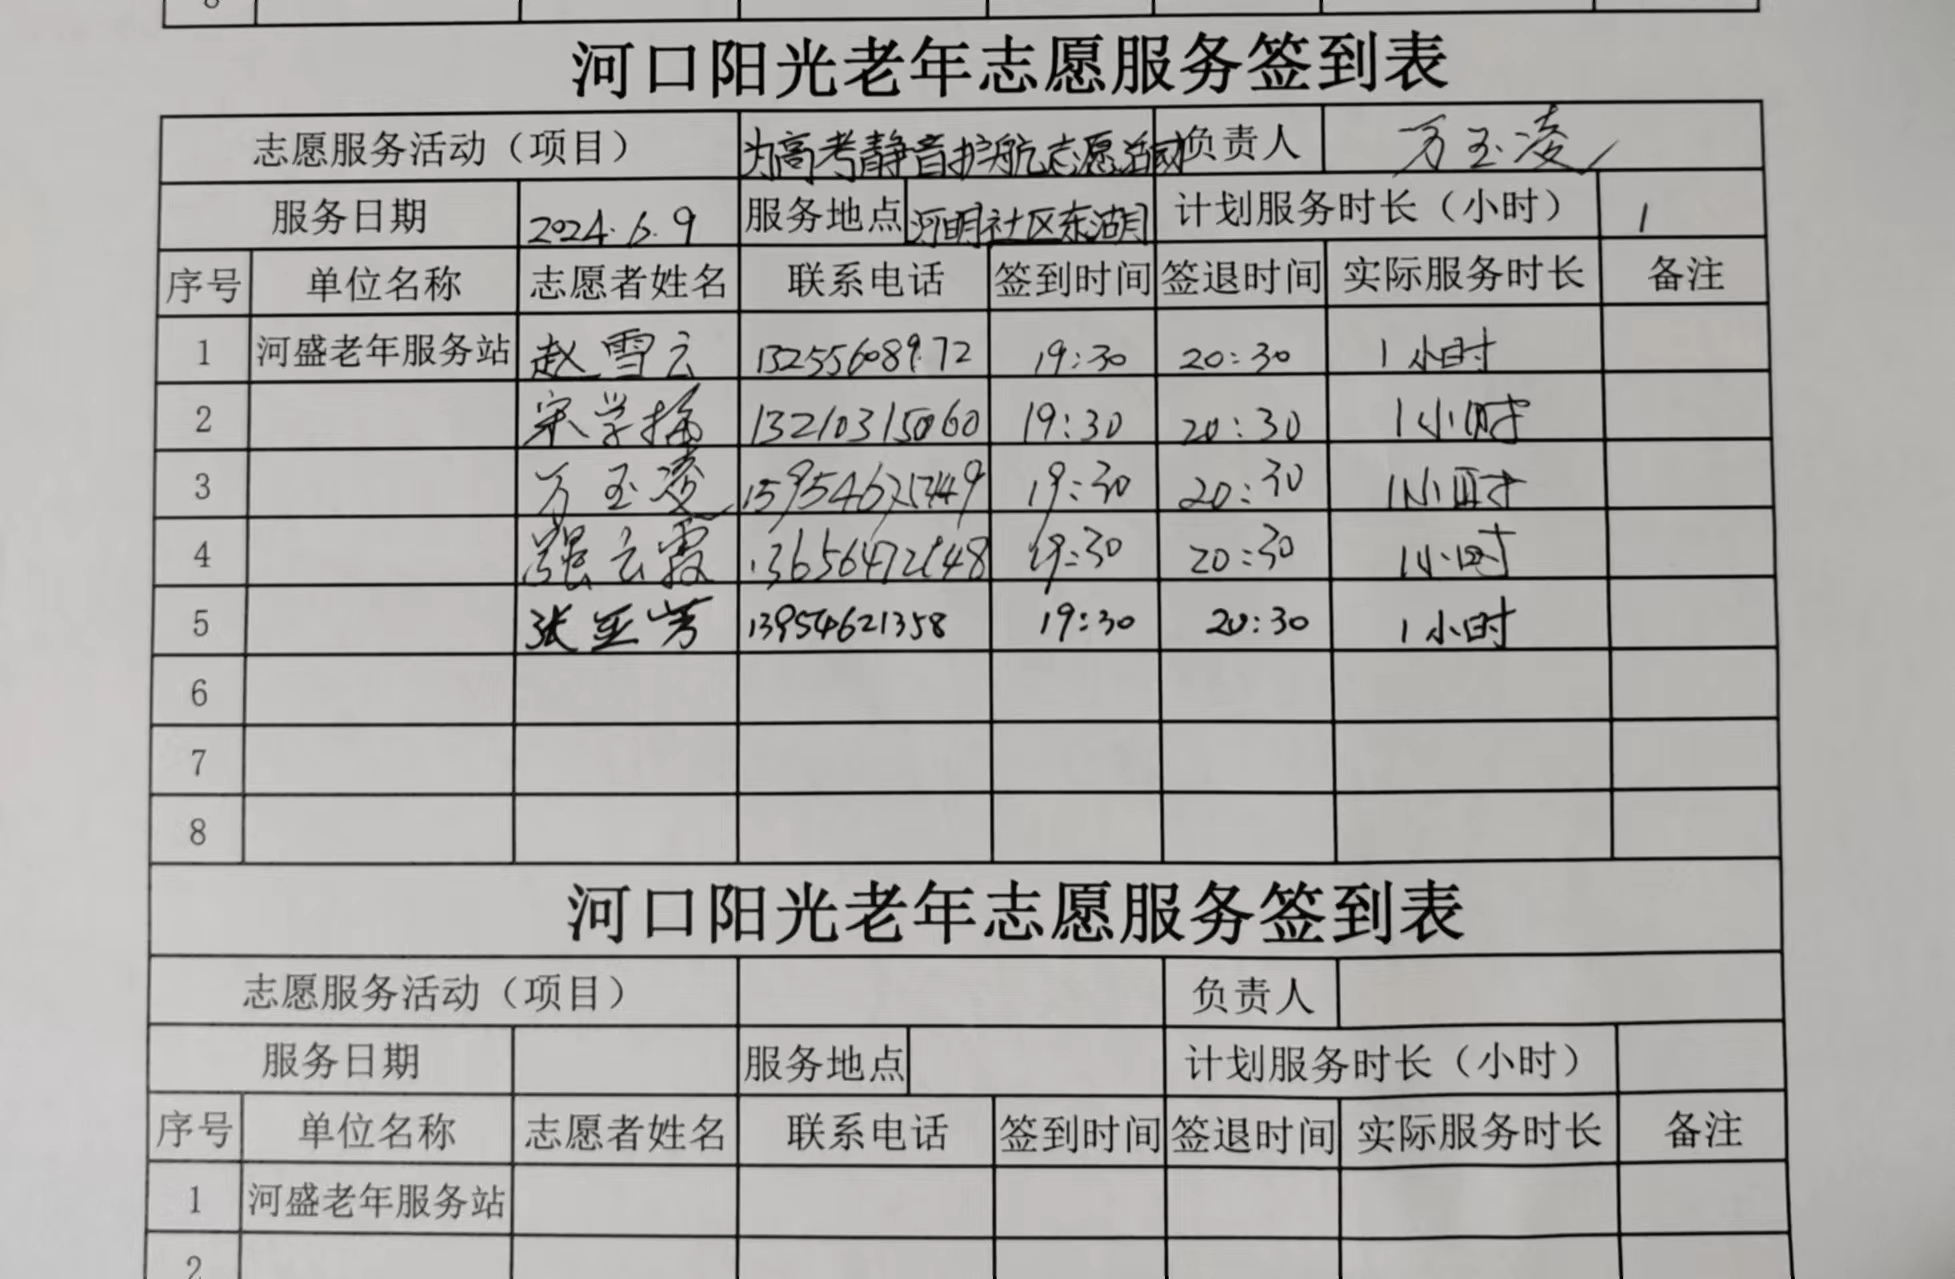 8
河口阳光老年志愿服务签到表
志愿服务活动（项目） 为高考静音护航志愿活动 负责人 万玉凌
服务日期 2024.6.9 服务地点 河明社区东湖 计划服务时长（小时） 1
序号 单位名称 志愿者姓名 联系电话 签到时间 签退时间 实际服务时长 备注
1 河盛老年服务站 赵雪云 13255608972 19:30 20:30 1小时
2 宋学 13210315060 19:30 20:30 1小时
3 万玉凌 19:30 20:30 1小时
4 强云霞 13656472148 19:30 20:30 1小时
5 张亚芳 13954621358 19:30 20:30 1小时
6
7
8
河口阳光老年志愿服务签到表
志愿服务活动（项目） 负责人
服务日期 服务地点 计划服务时长（小时）
序号 单位名称 志愿者姓名 联系电话 签到时间 签退时间 实际服务时长 备注
1 河盛老年服务站
2